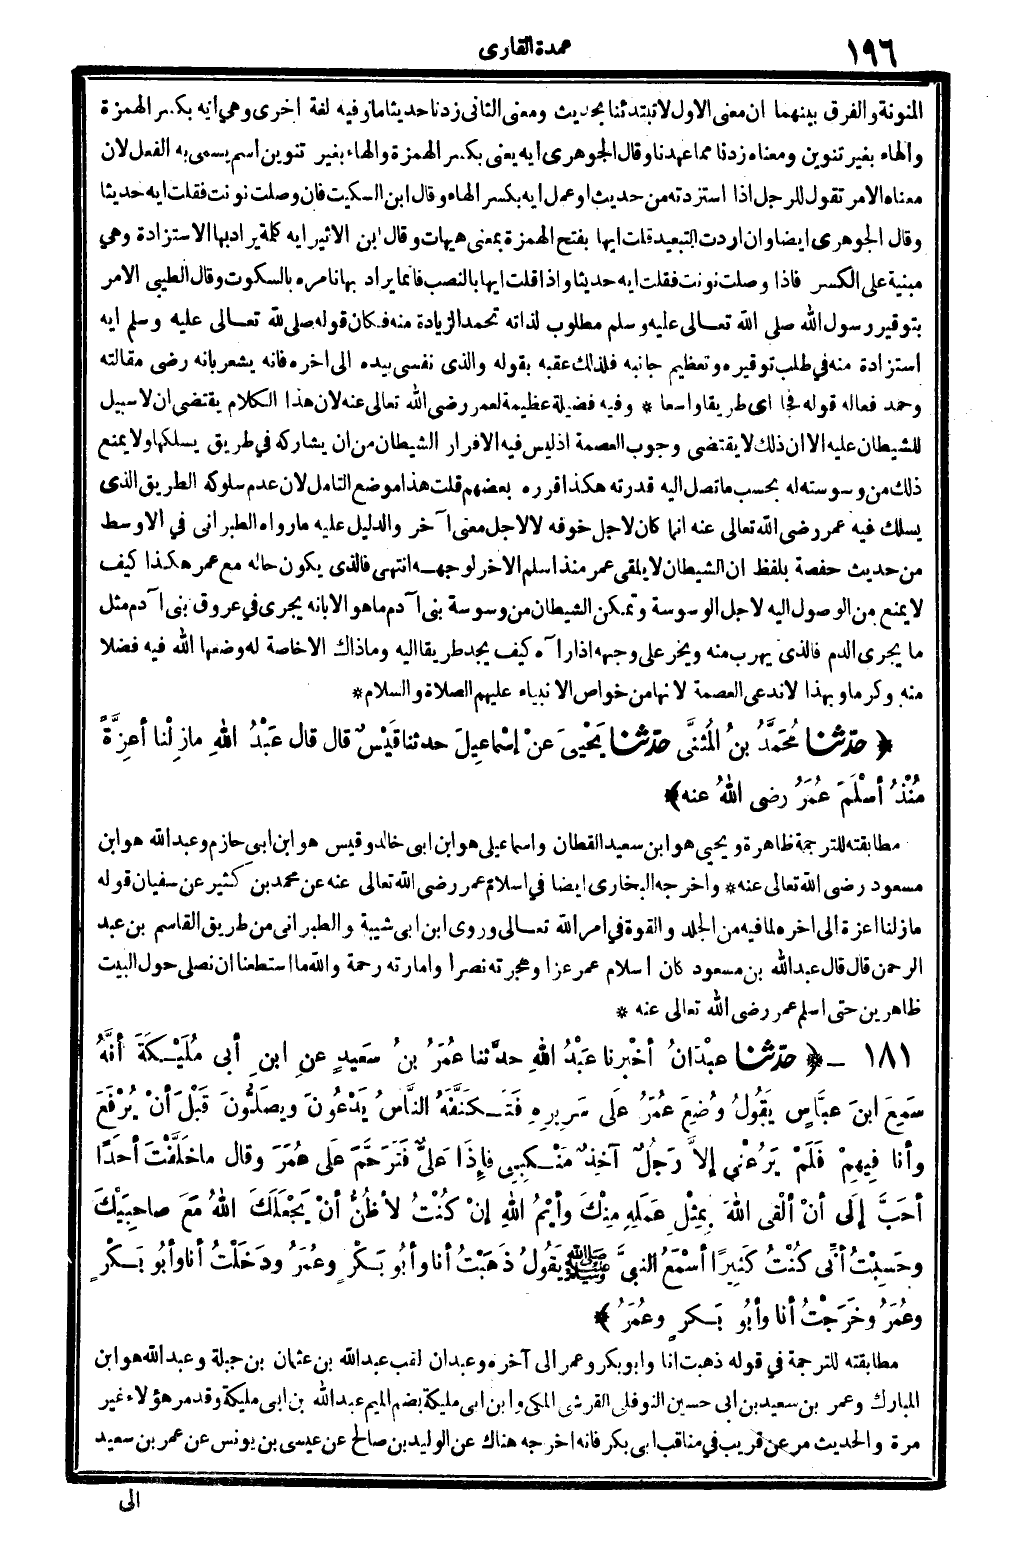 ١٩٦
عمدة القارى
المنونة والفرق بينهما ان معنى الاول لا تبتدئنا بحديث ومعنى الثانى زدنا حديثا ما وفيه لغة اخرى وهي ايه بكسر الهمزة
والهاء بغير تنوين ومعناه زدنا مما عهدنا وقال الجوهرى ايه يعنى بكسر الهمزة والهاء بغير تنوين اسم يسمى به الفعل لان
معناه الامر تقول للرجل اذا استزدته من حديث او عمل ايه بكسر الهاء وقال ابن السكيت فان وصلت نونت فقلت ايه حديثا
وقال الجوهرى ايضا وان اردت التبعيد قلت ايها بفتح الهمزة بمعنى هيهات وقال ابن الاثير ايه كلمة يراد بها الاستزادة وهي
مبنية على الكسر فاذا وصلت نونت فقلت ايه حديثا واذا قلت ايها بالنصب فانما يراد بها نامره بالسكوت وقال الطيبى الامر
بتوقير رسول الله صلى الله تعالى عليه وسلم مطلوب لذاته تحمد الزيادة منه فكان قوله صلى لله تعالى عليه وسلم ايه
استزادة منه في طلب توقيره وتعظيم جانبه فلذلك عقبه بقوله والذى نفسى بيده الى اخره فانه يشعر بانه رضى مقالته
وحمد فعاله قوله فجا اى طريقا واسعا * وفيه فضيلة عظيمة لعمر رضى الله تعالى عنه لان هذا الكلام يقتضى ان لا سبيل
للشيطان عليه الا ان ذلك لا يقتضى وجوب العصمة اذ ليس فيه الا فرار الشيطان من ان يشاركه في طريق يسلكها ولا يمنع
ذلك من وسوسته له بحسب ما تصل اليه قدرته هكذا قرره بعضهم قلت هذا موضع التامل لان عدم سلوكه الطريق الذى
يسلك فيه عمر رضى الله تعالى عنه انما كان لاجل خوفه لا لاجل معنى آخر والدليل عليه ما رواه الطبرانى في الاوسط
من حديث حفصة بلفظ ان الشيطان لا يلقى عمر منذ اسلم الا خر لوجهه انتهى فالذى يكون حاله مع عمر هكذا كيف
لا يمنع من الوصول اليه لاجل الوسوسة وتمكن الشيطان من وسوسة بنى آدم ما هو الا بانه يجرى في عروق بنى آدم مثل
ما يجرى الدم فالذى يهرب منه ويخر على وجهه اذا رآه كيف يجد طريقا اليه وما ذاك الا خاصة له وضعها الله فيه فضلا
منه وكرما وبهذا لا ندعى العصمة لانها من خواص الانبياء عليهم الصلاة والسلام*
﴿ حَدَّثَنَا مُحَمَّدُ بنُ الْمُثنَّى حَدَّثَنَا يَحْيىَ عنْ إسْماعِيلَ حدثنا قَيْسٌ قال قال عَبْدُ اللهِ ما زِلْنا أعِزَّةً
مُنْذُ أسْلَمَ عُمَرُ رضى اللهُ عنه﴾
مطابقته للترجمة ظاهرة ويحيى هو ابن سعيد القطان واسماعيلى هو ابن ابى خالد وقيس هو ابن ابى حازم وعبد الله هو ابن
مسعود رضى الله تعالى عنه* واخرجه البخارى ايضا في اسلام عمر رضى الله تعالى عنه عن محمد بن كثير عن سفيان قوله
ما زلنا اعزة الى اخره لما فيه من الجلد والقوة في امر الله تعالى وروى ابن ابى شيبة والطبرانى من طريق القاسم بن عبد
الرحمن قال قال عبد الله بن مسعود كان اسلام عمر عزا وهجرته نصرا وامارته رحمة والله ما استطعنا ان نصلى حول البيت
ظاهرين حتى اسلم عمر رضى الله تعالى عنه *
١٨١ – ﴿ حَدَّثَنَا عبْدَانُ أخْبرنا عَبْدُ اللهِ حدَّثنا عُمَرُ بنُ سَعِيدٍ عنِ ابنِ أبى مُلَيْكَةَ أنَّهُ
سَمِعَ ابنَ عبَّاسٍ يَقُولُ وُضِعَ عُمَرُ عَلَى سَرِيرِهِ فَتَكَنَّفَهُ النَّاسُ يَدْعُونَ ويصَلُّونَ قَبْلَ أنْ يُرْفَعَ
وأنا فِيهِمْ فَلَمْ يَرُعْنِي إلاَّ رَجُلٌ آخِذٌ مَنْكِبِى فإذَا عَلِىٌّ فَتَرَحَّمَ عَلَى عُمَرَ وقال ما خلَّفْتَ أحَدًا
أحَبَّ إلَى أنْ ألْقَى اللهَ بِمِثْلِ عَمَلِهِ مِنْكَ وأيْمُ اللهِ إنْ كُنْتُ لأظُنُّ أنْ يَجْعَلَكَ اللهُ مَعَ صاحِبَيْكَ
وحَسِبْتُ أنِّى كُنْتُ كَثِيرًا أسْمَعُ النبىَّ ﷺ يَقُولُ ذَهَبْتُ أنا وأبُو بَكْرٍ وعُمَرُ ودَخَلْتُ أنا وأبُو بَكْرٍ
وعُمَرُ وخَرَجْتُ أنا وأبُو بَكرٍ وعُمَرُ ﴾
مطابقته للترجمة في قوله ذهبت انا وابو بكر وعمر الى آخره وعبدان لقب عبد الله بن عثمان بن جبلة وعبد الله هو ابن
المبارك وعمر بن سعيد بن ابى حسين النوفلى القرشى المكى وابن ابى مليكة بضم الميم عبد الله بن ابى مليكة وقد مر هؤلاء غير
مرة والحديث مر عن قريب في مناقب ابى بكر فانه اخرجه هناك عن الوليد بن صالح عن عيسى بن يونس عن عمر بن سعيد
الى